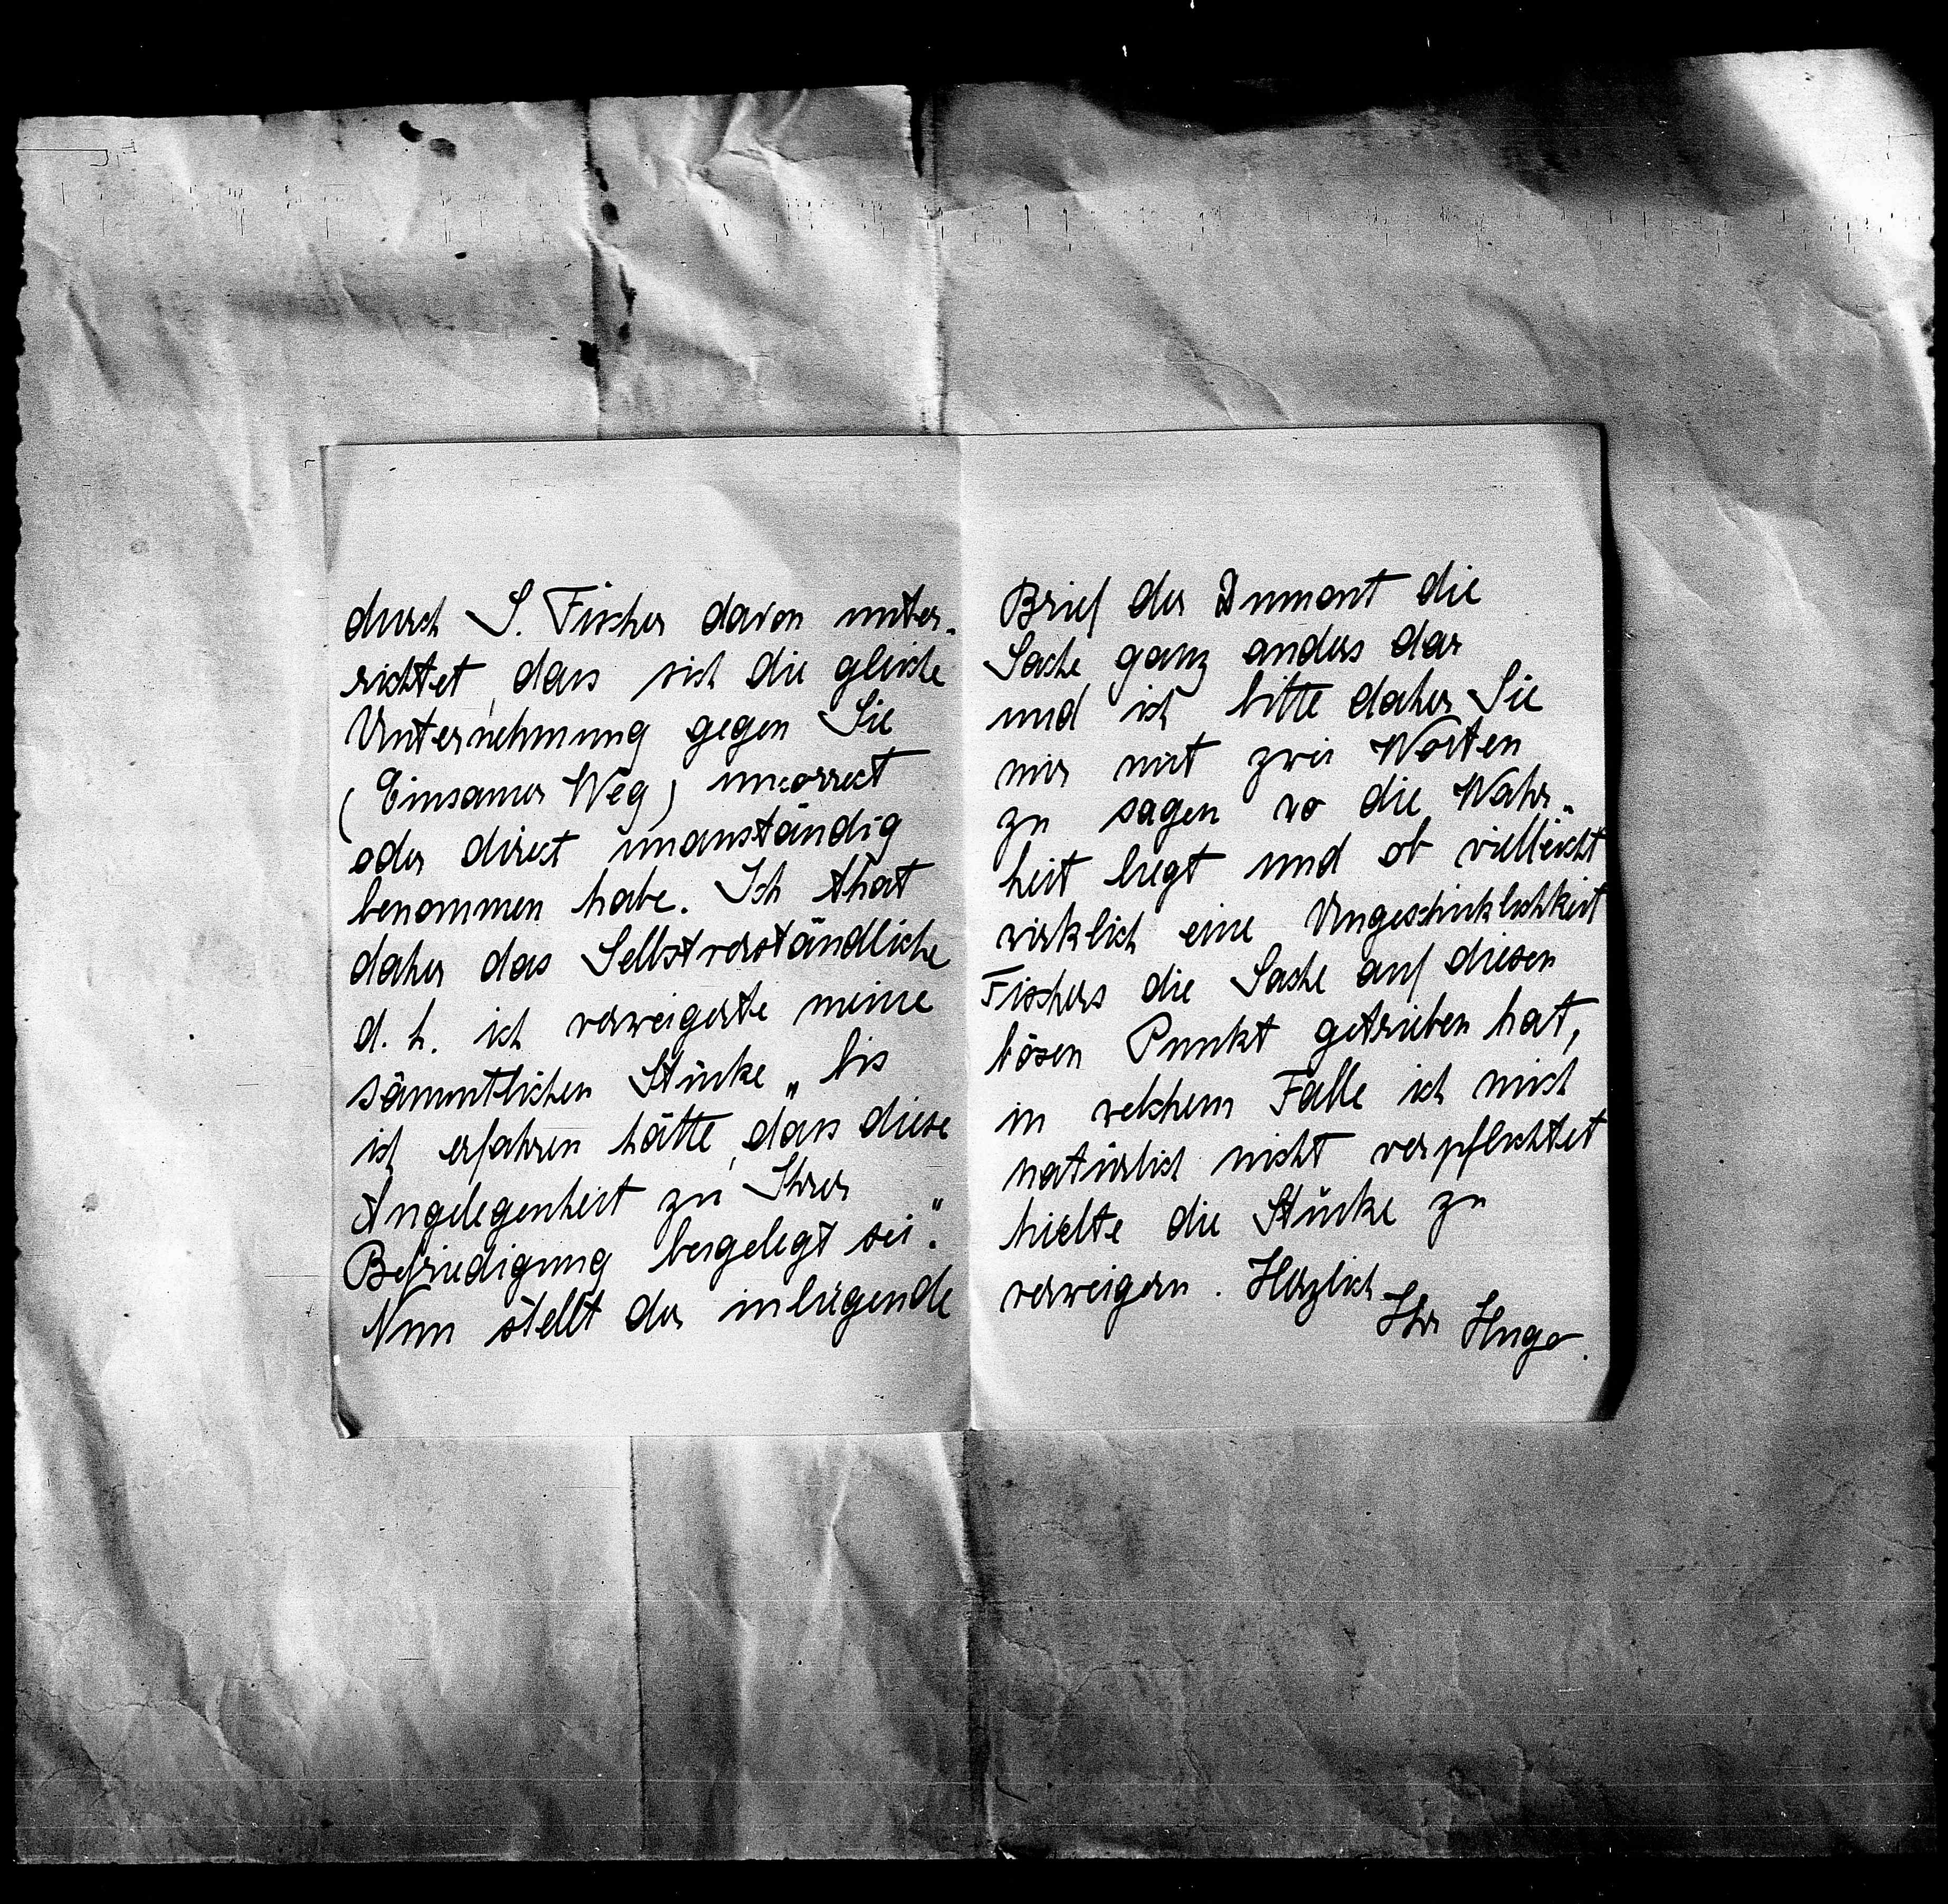 durch S. Fischer davon unter-
richtet, dass sich die gleiche
Unternehmung gegen Sie
(Einsamer Weg) uncorrect
oder direct unanständig
benommen habe. Ich that
daher das Selbstverständliche
d. h. ich verweigerte meine
sämmtlichen Stücke „bis
ich erfahren hätte, dass diese
Angelegenheit zu Ihrer
Befriedigung beigelegt sei".
Nun stellt der inliegende
Brief der Dumont die
Sache ganz anders dar
und ich bitte daher Sie
mir mit zwei Worten
zu sagen wo die Wahr-
heit liegt und ob vielleicht
wirklich eine Ungeschicklichkeit
Fischers die Sache auf diesen
bösen Punkt getrieben hat,
in welchem Falle ich mich
natürlich nicht verpflichtet
hielte die Stücke zu
verweigern. Herzlich
Ihr Hugo.